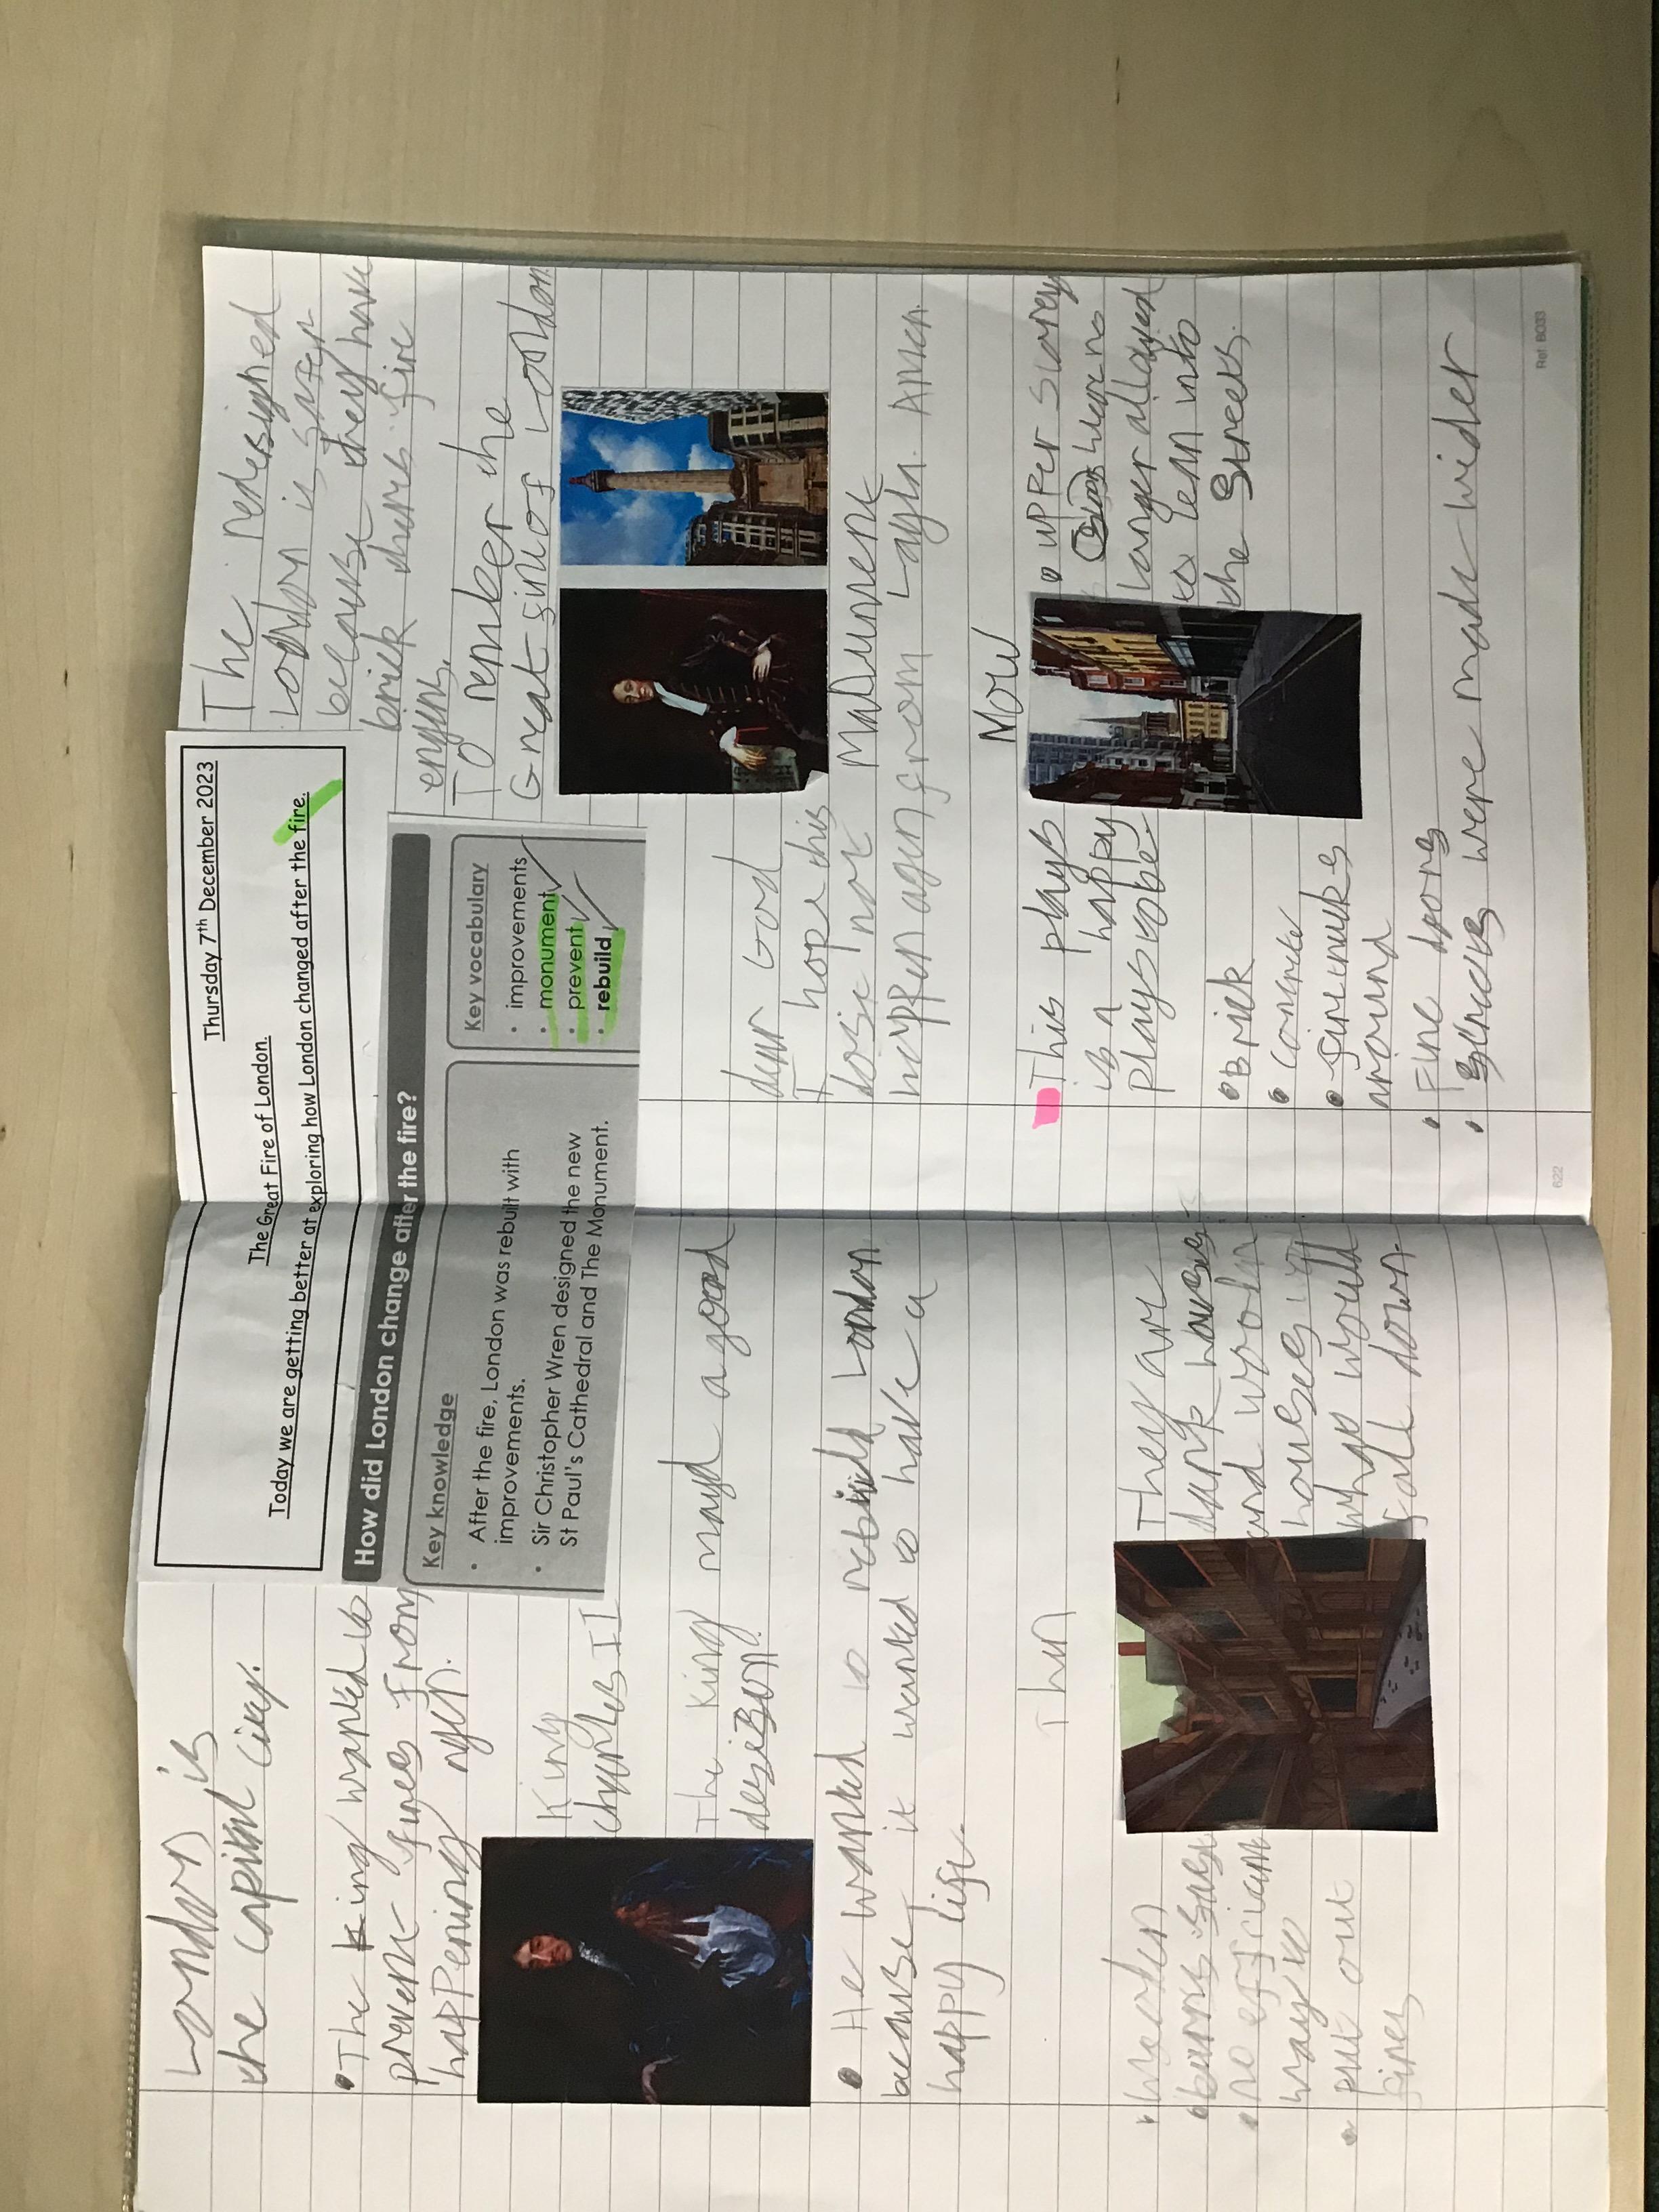 Thursday 7th December 2023
The Great Fire of London.
Today we are getting better at exploring how London changed after the fire.
How did London change after the fire?
Key knowledge
• After the fire, London was rebuilt with
improvements.
• Sir Christopher Wren designed the new
St Paul's Cathedral and The Monument.
Key vocabulary
• improvements
• monument
• prevent
• rebuild
London is
the capital city.
• The King wanted to
prevent fires from
happening agen.
King
Charles II
The King mayd a good
desison.
• He wanted to rebuild London
because it wanted to have a
happy life.
Then
• wooden
• burns
• no efficient
way to
• put out
fires
They are
dark houses
and wooden
houses it
what would
fall down.
The redesigned
London is
because they have
brick fire
engins.
To rember the
Great of London
dear God
I hope this
dose not
happen agen from Layla. Amen.
Madument
Now
This plays
is a happy
plays tobe.
• Brick
• concrete
• fire truks
around
• Fire doors
• streets were made wider
• upper storey
longer allowed
to lean into
the streets.
622
Ref B033